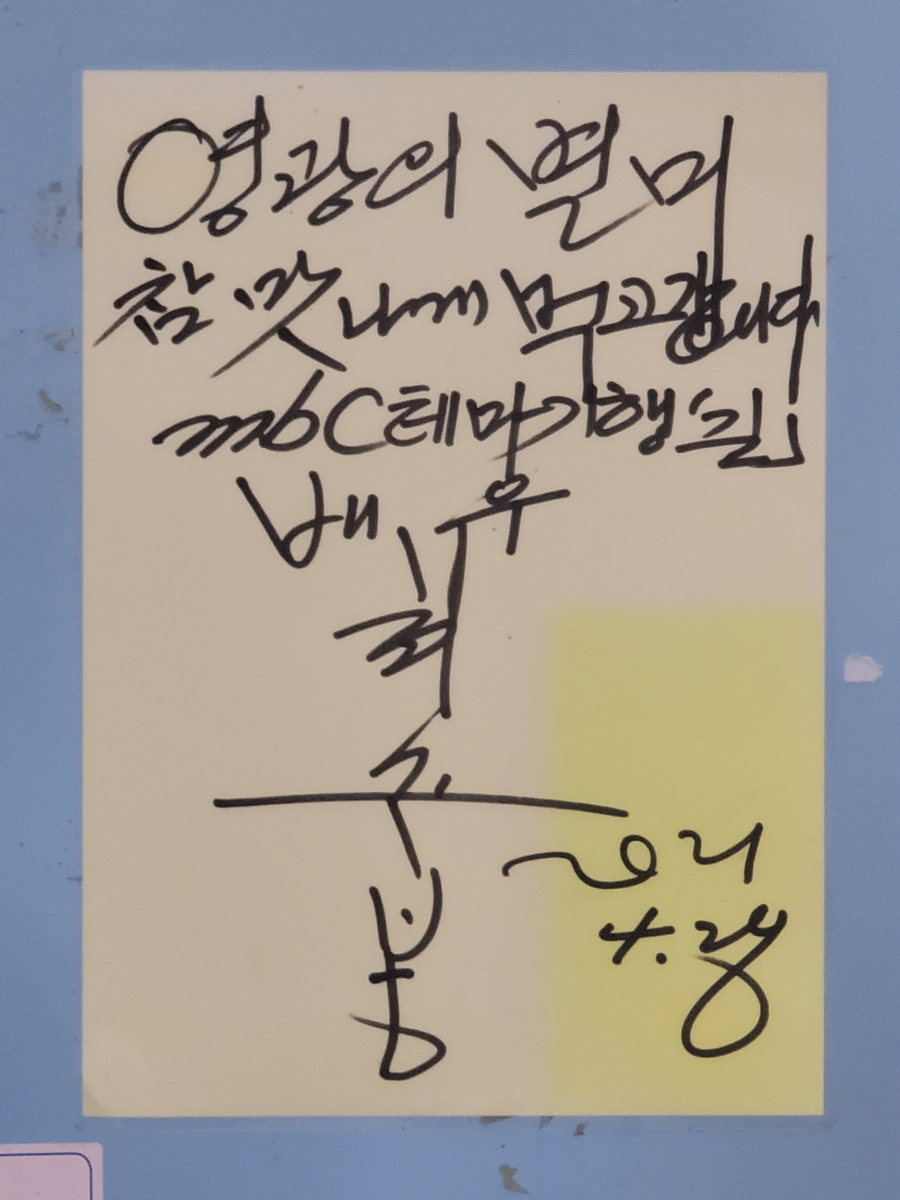 영광의 별미
참 맛나게 먹고갑니다
mbC테마기행 길
배우
최
주
봉
4.28